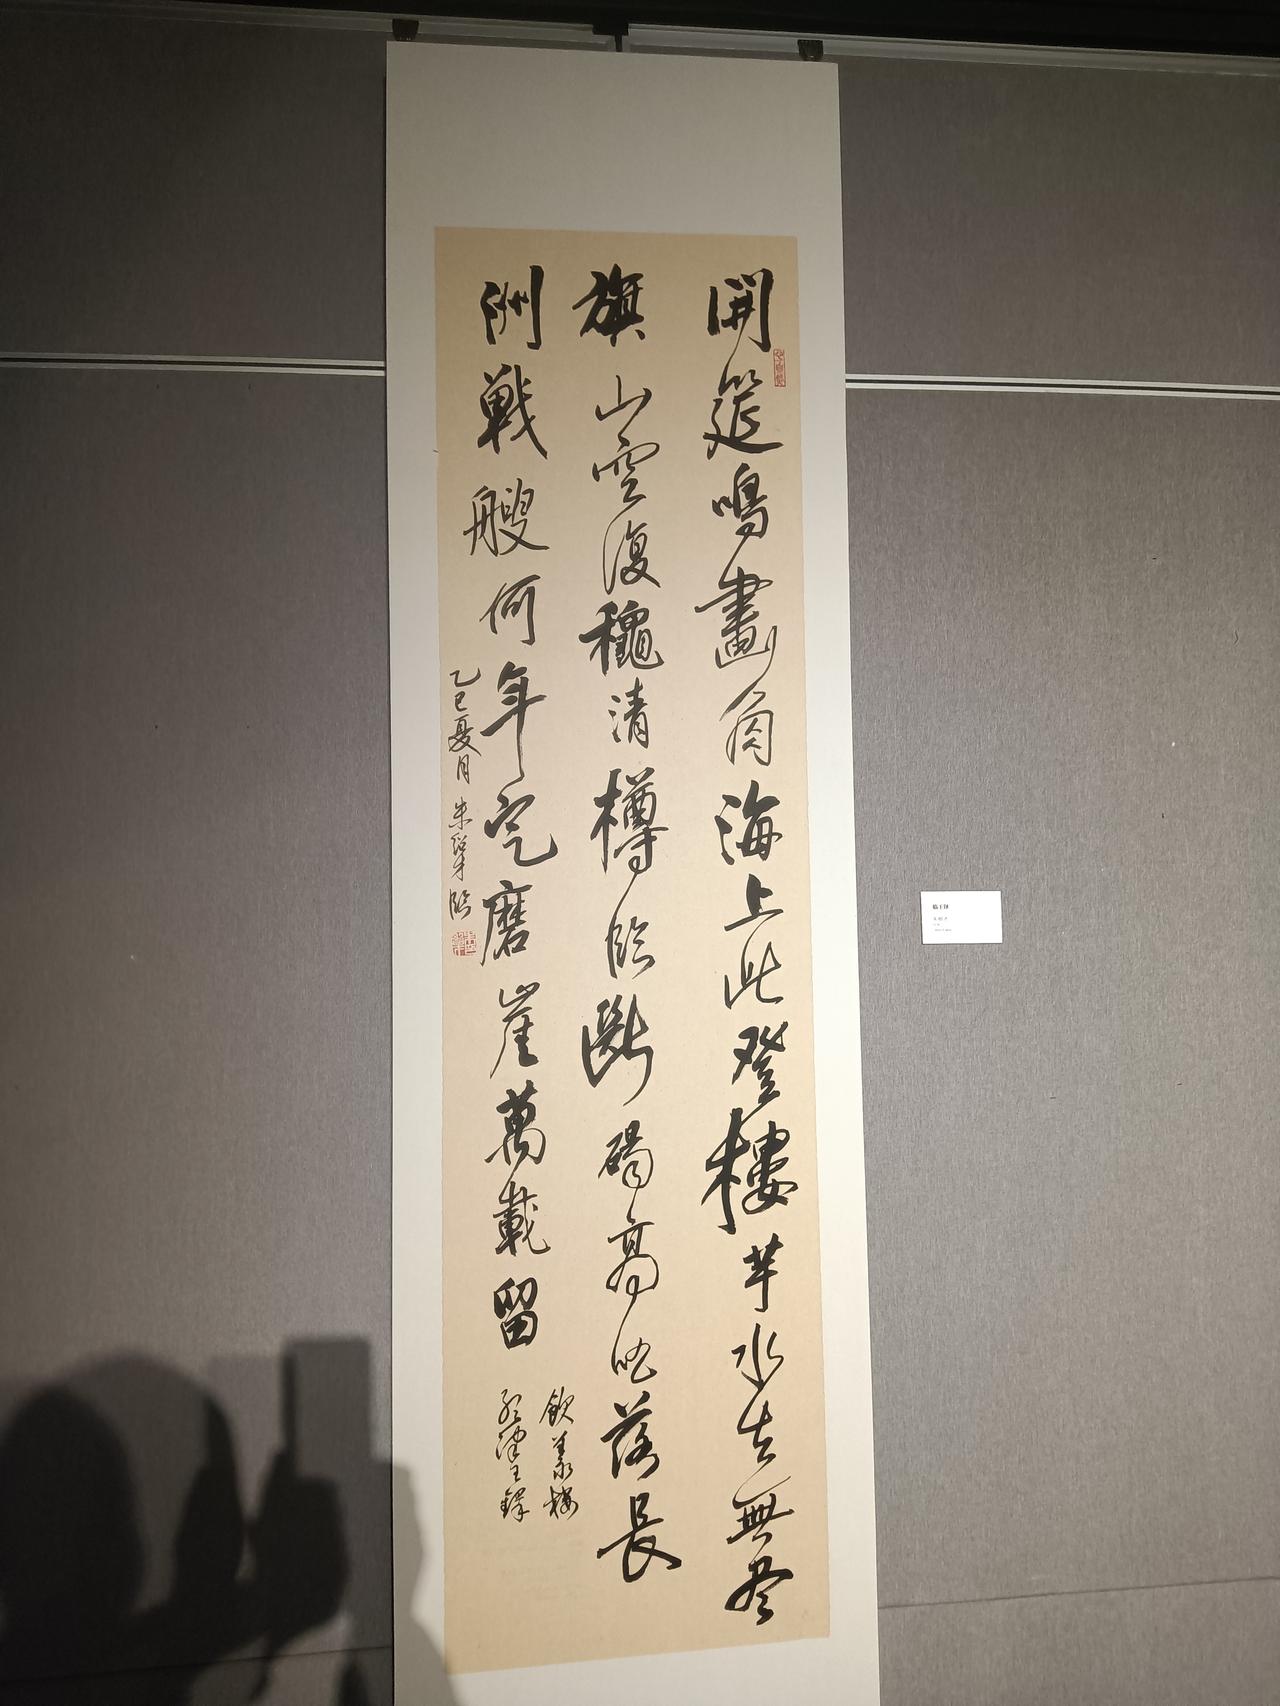 開筵鳴畫角海上此登樓芋水去無尽
旗山雲復穐清樽臨斷碣高吹落長
洲戰艘何年定磨崖萬載留
樓
王鐸
乙巳夏月 朱 臨
临王铎